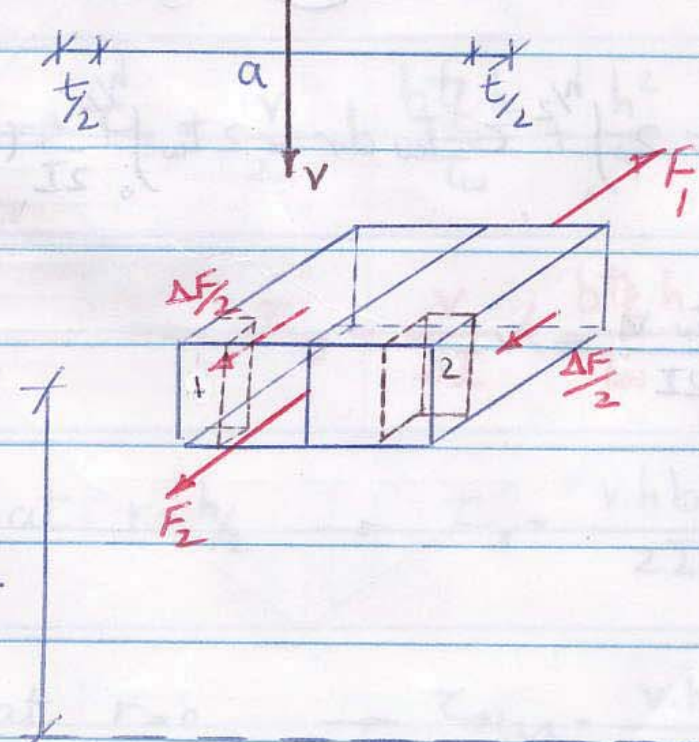 t/2
a
t/2
V
F1
ΔF/2
1
2
ΔF/2
F2